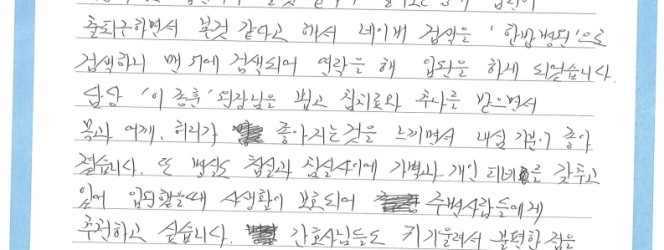 출퇴근하면서 본것 같다고 해서 네이버 검색을 '한방병원'으로
검색하니 맨 위에 검색되어 연락을 해 입원을 하게 되었습니다.
담당 '이종훈' 원장님을 뵙고 침치료와 추나를 받으면서
목과 어깨, 허리가 좋아지는것을 느끼면서 내심 기분이 좋아
졌습니다. 또 병상도 침실과 침실사이에 가벽과 개인 티비를 갖추고
있어 입원했을때 사생활이 보호되어 주변사람들에게
추천하고 싶습니다. 간호사님들도 귀 기울여서 불편한 점을